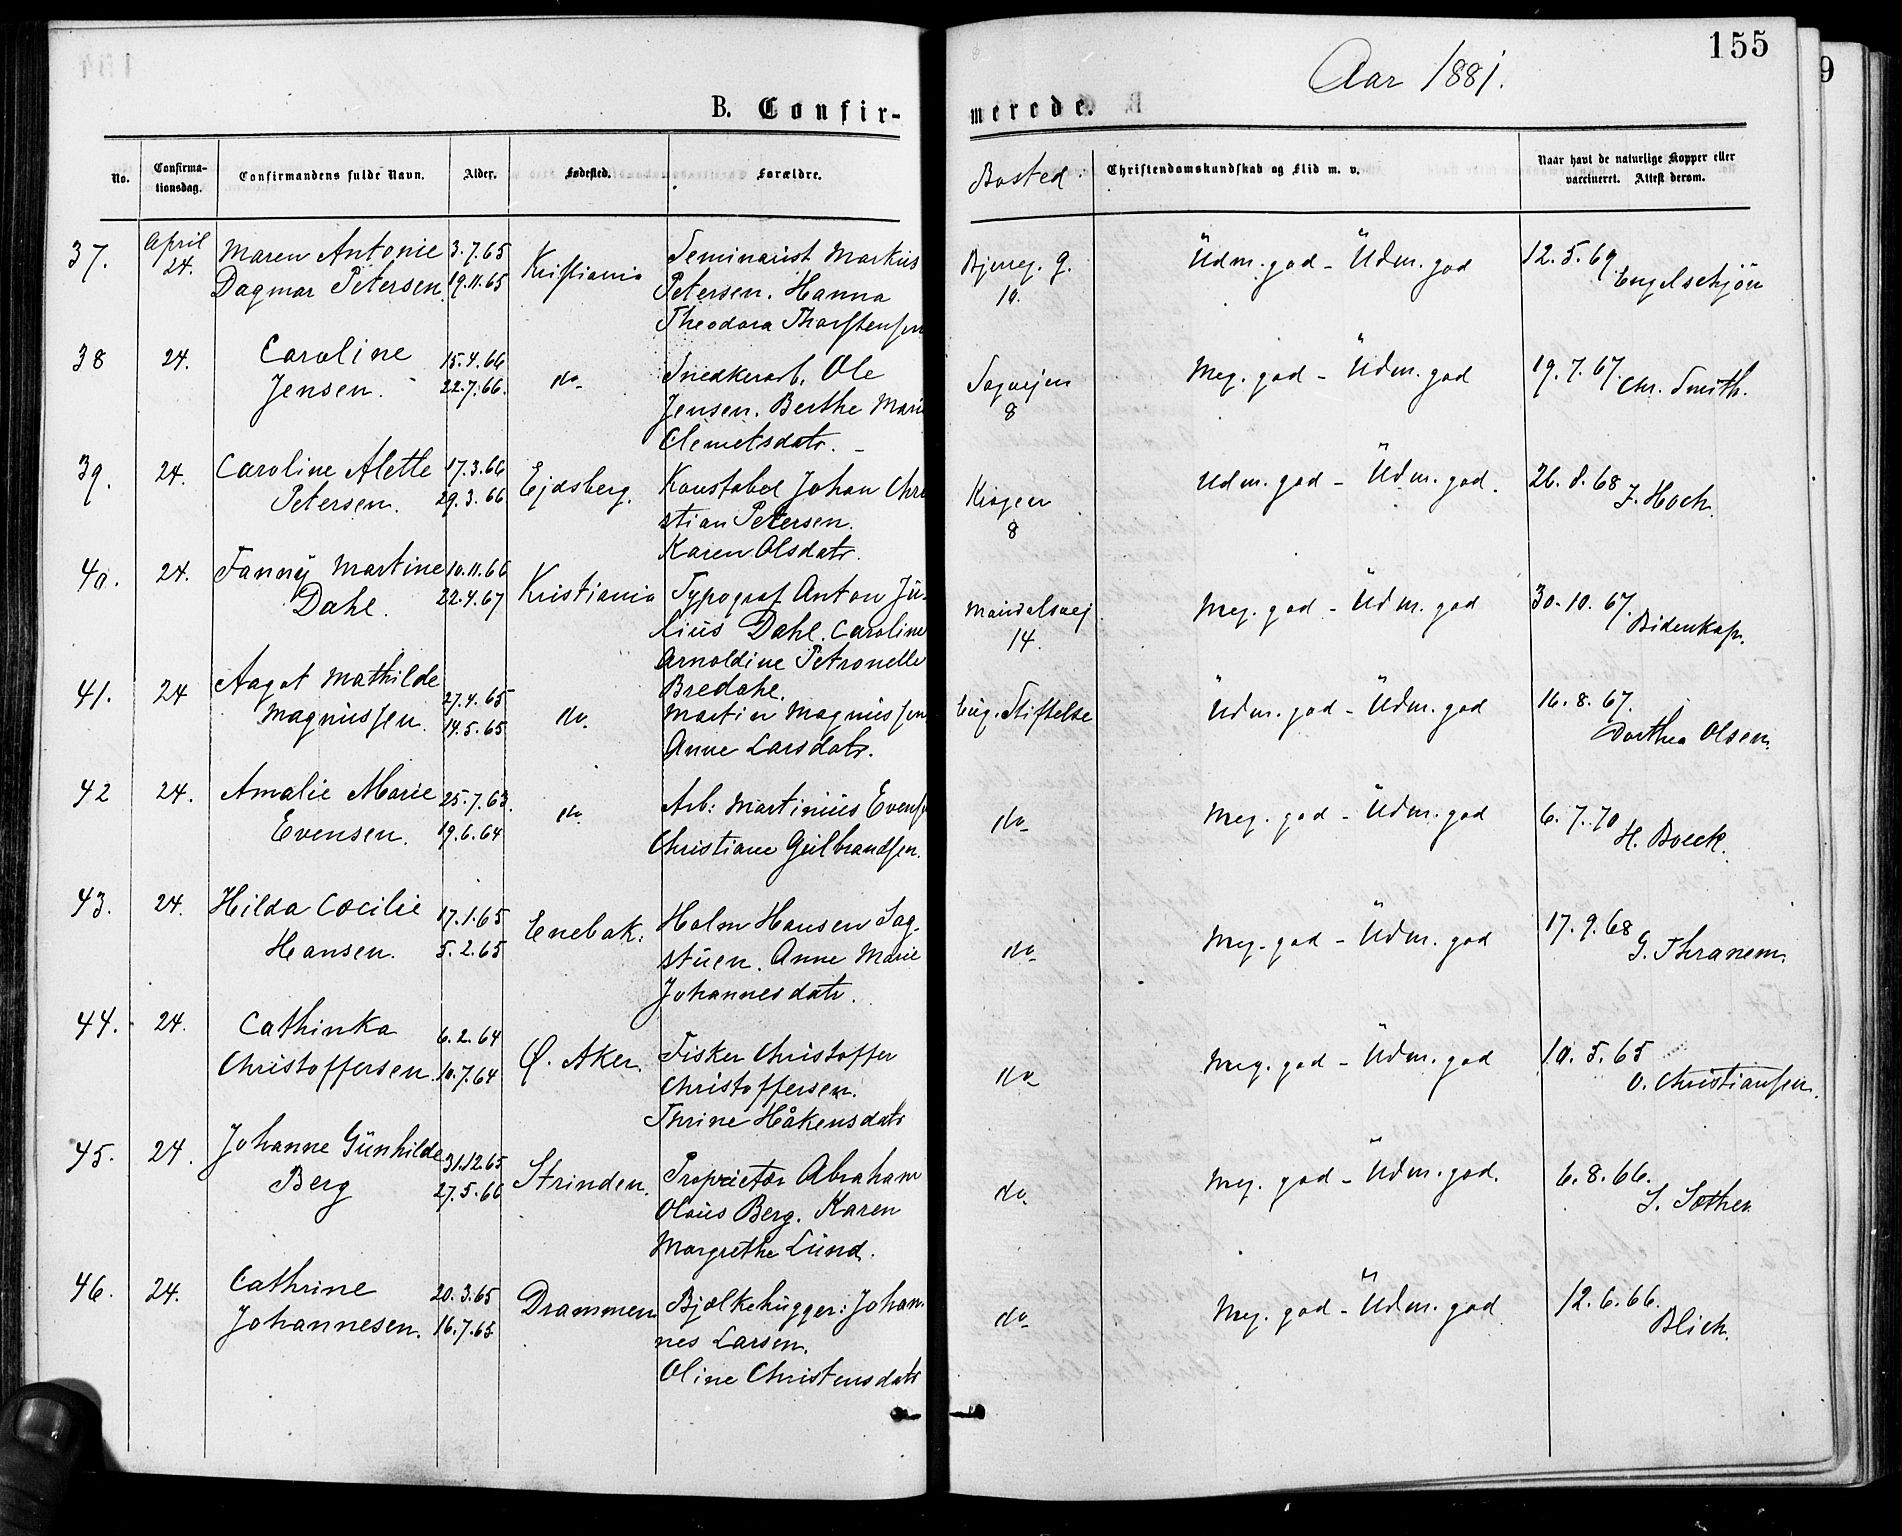 155
Aar 1881.
B. Confir-
merede.
No.
Confirma-
tionsdag.
Confirmandens fulde Navn.
Alder.
Fødested.
Forældre.
Bosted.
Christendomskundskab og Flid m. v.
Naar havt de naturlige Kopper eller
vaccineret. Attest derom.
37.
April
24.
Maren Antonie
Dagmar Petersen
3.7.65
19.11.65
Kristiania
Seminarist Markus
Petersen. Hanna
Theodora Thorstensen
10.
Udm. god - Udm. god
12.5.69
Engelschjøn
38
24.
Caroline
Jensen.
15.4.66
22.7.66.
do.
Snedkerarb. Ole
Jensen. Berthe Marie
Clemetsdatr. -
Sagvejen
8
Meg. god - Udm. god
19.7.67.
Chr. Smith.
39.
24.
Caroline Alette
Petersen.
17.3.66
29.3.66
Ejdsberg.
Konstabel Johan Chri
stian Petersen.
Karen Olsdatr.
Krogen
8
Udm. god - Udm. god.
26.8.68
J. Hoch.
40.
24.
Fanny Martine
Dahl.
10.11.66
22.4.67
Kristiania
Typograf Anton Ju-
lius Dahl. Caroline
Arnoldine Petronelle
Bredahl.
Maridalsvej
14.
Meg. god - Udm. god
30.10.67.
Bidenkap.
41.
24
Aagot Mathilde
Magnussen.
27.4.65
14.5.65
do.
Martin Magnussen
Anne Larsdatr.
Eug. Stiftelse
Udm. god - Udm. god
16.8.67.
Dorthea Olsen.
42
24.
Amalie Marie
Evensen.
25.7.63.
19.6.64
do.
Arb: Martinius Evens
Christiane Gulbrandsen.
do.
Meg. god - Udm. god
6.7.70
H. Boeck.
43.
24.
Hilda Cæcilie
Hansen.
17.1.65
5.2.65
Enebak:
Holm Hansen Sag-
stuen. Anne Marie
Johannesdatr.
do.
Meg. god - Udm. god
17.9.68
G. Thranem.
44.
24.
Cathinka
Christoffersen.
6.2.64
10.7.64
Ø. Aker.
Fisker Christoffer
Christoffersen.
Thrine Håkensdatr
do.
Meg. god - Udm. god
10.5.65
O. Christiansen.
45.
24.
Johanne Gunhilde
Berg
31.12.65
27.5.66
Strinden.
Proprietær Abraham
Olaus Berg. Karen
Margrethe Lund.
do.
Meg. god - Udm. god.
6.8.66.
46.
24.
Cathrine
Johannesen.
20.3.65
16.7.65
Drammen
Bjælkehugger: Johan-
nes Larsen.
Oline Christensdatr
do.
Meg. god - Udm. god
12.6.66.
Blich.